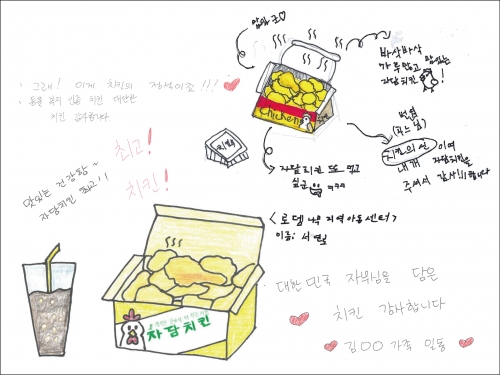 맘마 굿♡
바삭바삭
가루많고 맛있는
자담치킨
!
그래! 이게 치킨의 정석이죠!!!
치킨 감사합니다
Chicken
치킨무
자담치킨 또 먹고
싶군 ㅋㅋㅋ
치킨의 신 이여
내게 자담치킨을
주셔서 감사!!합니다
최고!
치킨!
맛있는 건강한~
자담치킨 최고!!
<로뎀나무 지역아동센터>
이름:
자담치킨
대한민국 자위님을 담은
치킨 감사합니다
김OO 가족 일동